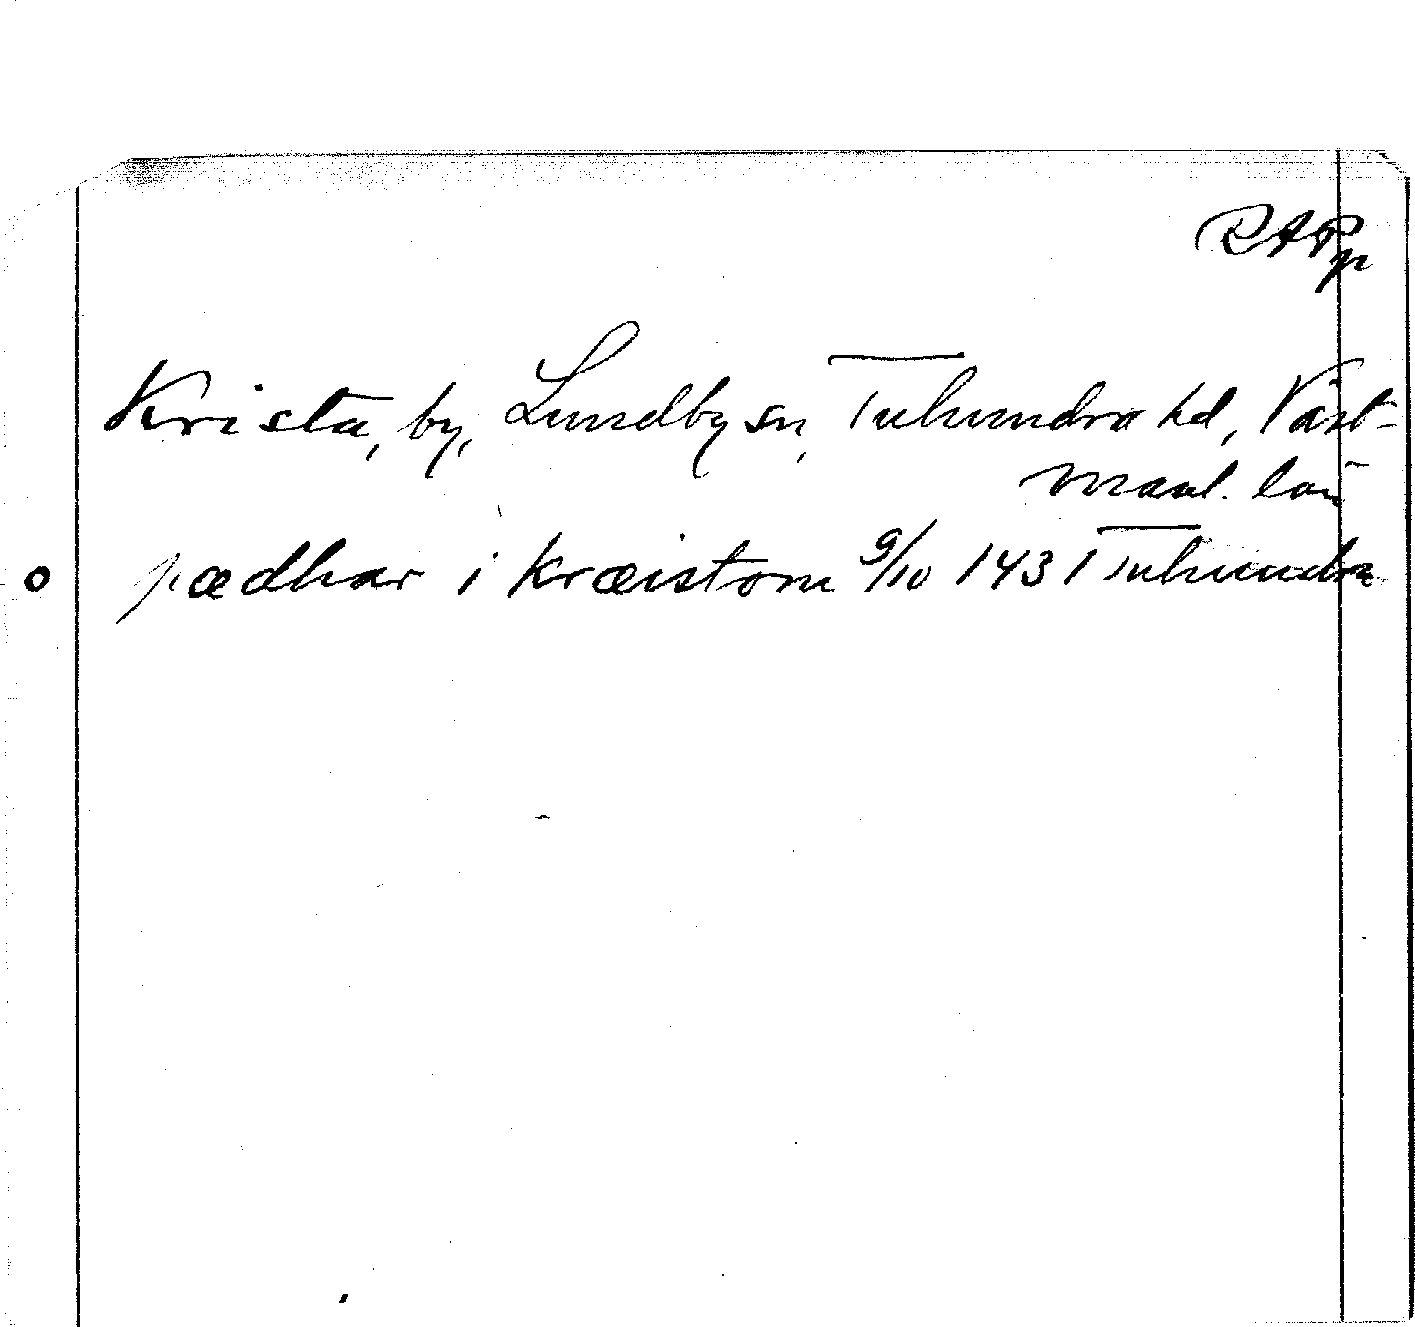 RAPp
Krista, by, Lundby sn, Tuhundra hd, Väst-
manl. län
pædhar i kræistom 9/10 1431 Tuhundra